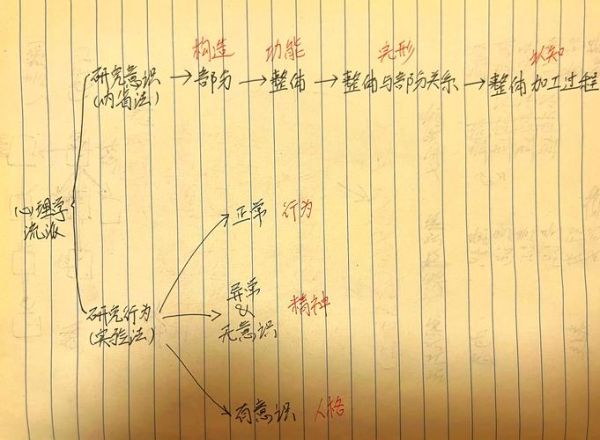 构造 功能 完形 认知
研究意识 → 部分 → 整体 → 整体与部分关系 → 整体加工过程
(内省法)
心理学
流派
正常 行为
异常 精神
&
无意识
研究行为
(实验法)
有意识 人格